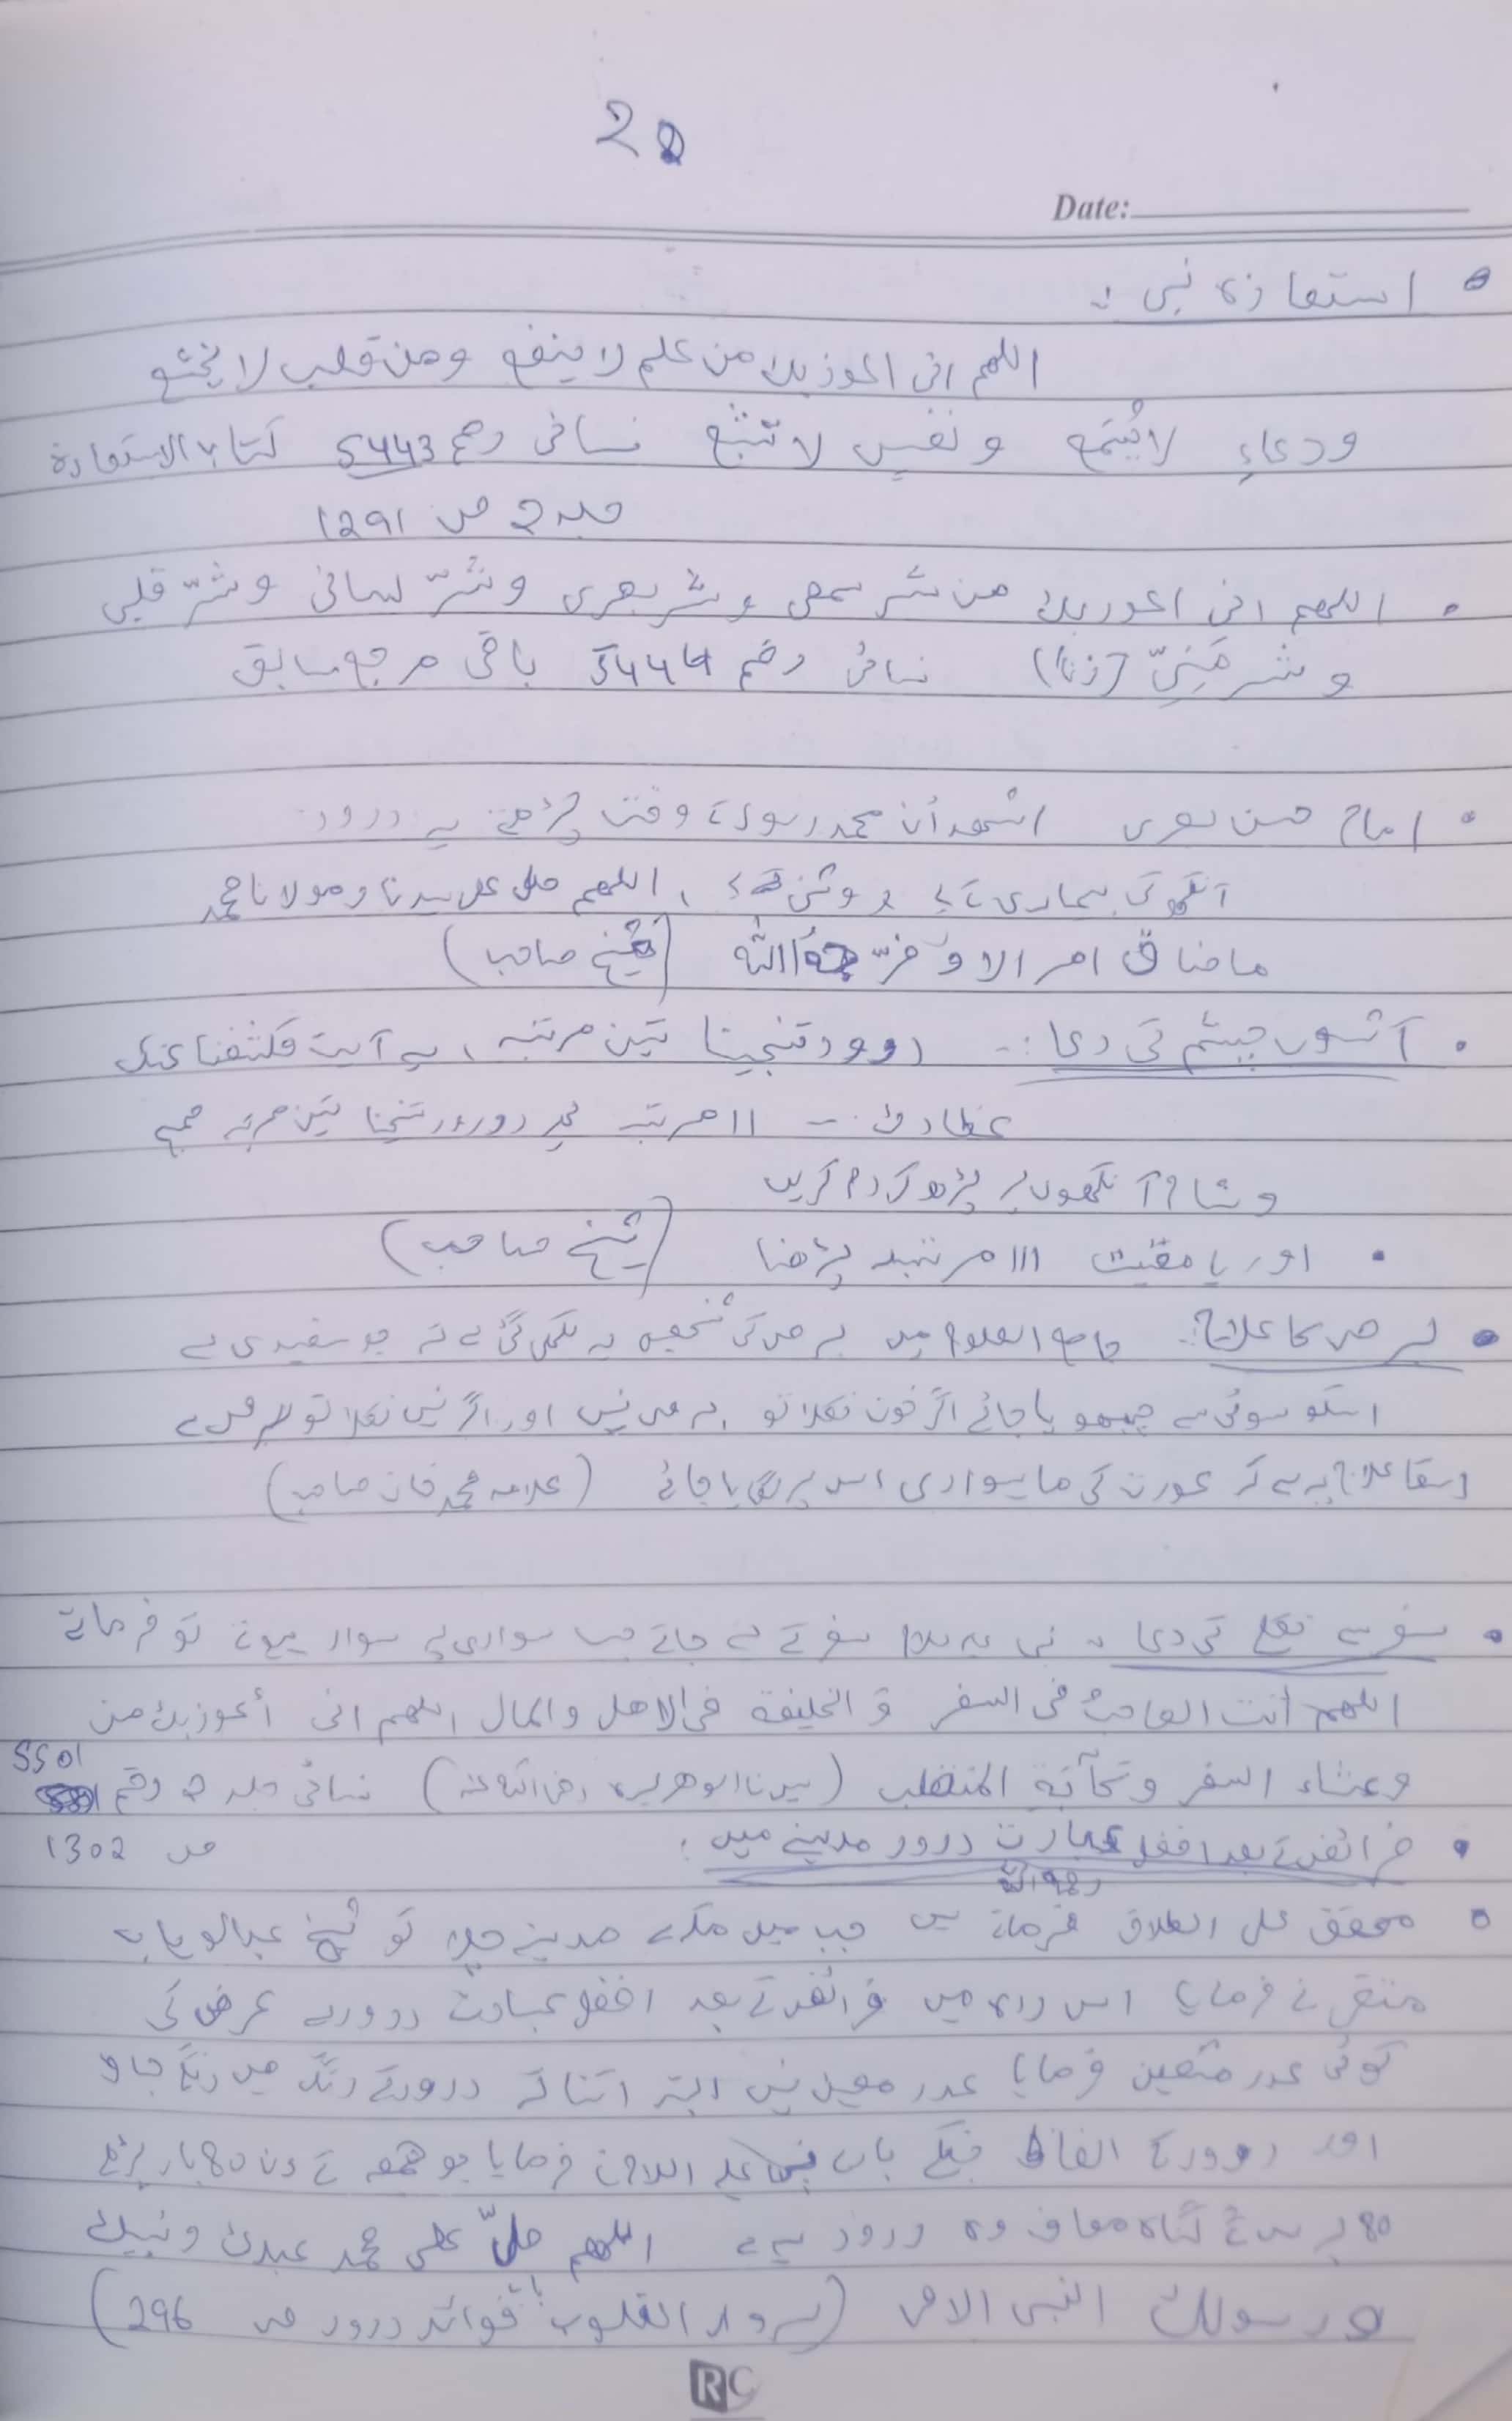 20
Date:
استعاذہ نبی :
اللھم انی اعوذبک من علم لا ینفع ومن قلب لا یخشع
ودعاءٍ لا یُسمع و نفسٍ لا تشبع نسائی رقم 5443 کتاب الاستعاذۃ
جلد 2 ص 1291
اللھم انی اعوذبک من شر سمعی و شر بصری و شرّ لسانی و شرّ قلبی
و شر مَنِیّ (زنا) نسائی رقم 5444 باقی مرجع سابق
امام حسن بصری اشھد أن محمد رسول کے وقت پڑھتے یہ درود
آنکھو کی بیماری اللھم صل علی سیدنا و مولانا محمد
ماضاق امر الا و فرّجہُ اللّٰہ (شیخ صاحب)
آشوب چشم کی دعا :۔ درود تنجینا تین مرتبہ ، یہ آیت فکشفنا عنک
غطاءک :۔ 11 مرتبہ پھر درود تنجینا تین مرتبہ صبح
و شام آنکھوں پر پڑھ کر دم کریں
اور یا مقیت 111 مرتبہ پڑھنا (شیخ صاحب)
برص کا علاج :۔ جامع العلوم میں برص کی تشخیص یہ لکھی گئی ہے کہ جو سفیدی ہے
اسکو سوئی سے چبھو یا جائے اگر خون نکلا تو برص نہیں اور اگر نہیں نکلا تو برص ہے
اسکا علاج یہ ہے کہ عورت کی ماہواری اس پر لگایا جائے (علامہ محمد خان صاحب)
سفر سے نکلے کی دعا : نبی علیہ السلام سفر کے لے جاتے جب سواری پے سوار ہوتے تو فرماتے
اللھم أنت الصاحبُ فی السفر و الخلیفۃ فی الاھل والمال اللھم انی أعوذبک من
5501
وعثاء السفر و کآبۃ المنقلب (سیدنا ابوھریرہ رضی اللہ عنہ) نسائی جلد 2 رقم
فرائض کے بعد افضل عبادت درود مدینے میں : ص 1302
رحمہ اللہ
محقق علی اطلاق فرماتے ہیں جب میں مکہ سے مدینے چلا تو شیخ عبدالوہاب
متقی نے فرمایا اس راہ میں فرائض کے بعد افضل عبادت درود ہے عرض کی
کوئی عدد متعین فرمایا عدد معین نہیں البتہ اتنا کہ درود کے رنگ میں رنگے جاو
اور درود کے الفاظ جنکے بارے نبی علیہ السلام نے فرمایا جو جمعہ کے دن 80 بار پڑھے
80 برس کے گناہ معاف وہ درود یہ ہے اللھم صلّ علی محمد عبدک و نبیک
و رسولک النبی الامی (سرور القلوب ، فوائد درود ص 296)
RC